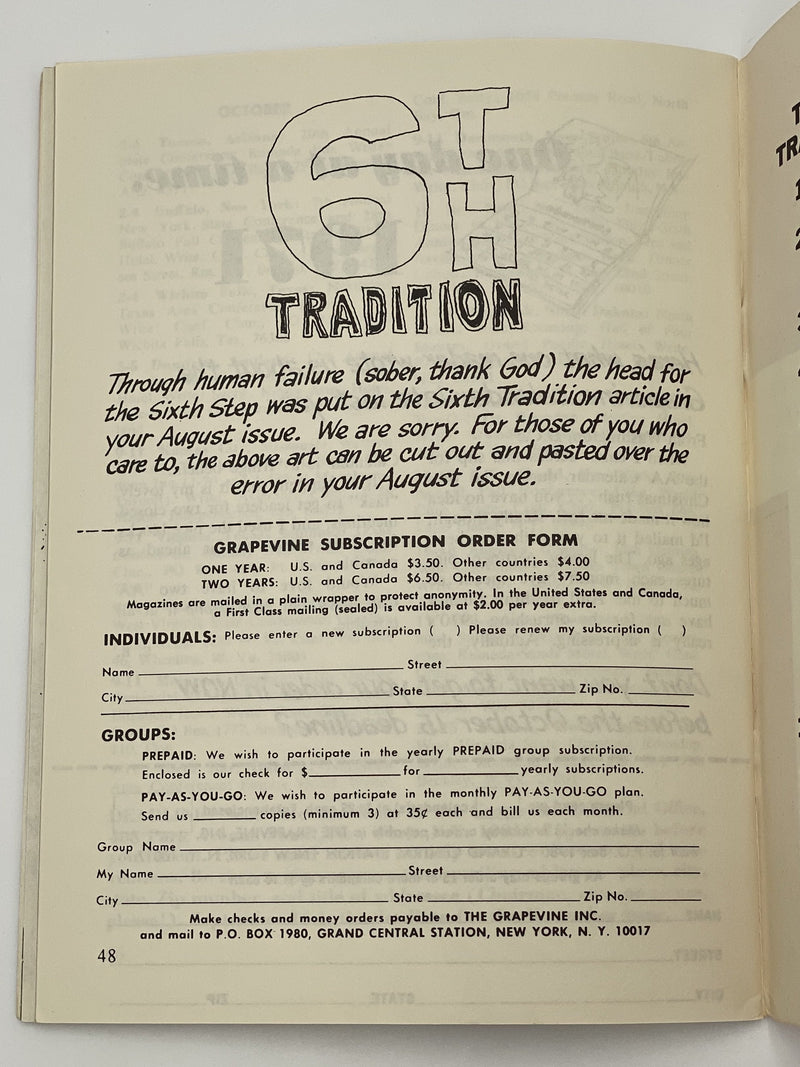 6TH
TRADITION
Through human failure (sober, thank God) the head for
the Sixth Step was put on the Sixth Tradition article in
your August issue. We are sorry. For those of you who
care to, the above art can be cut out and pasted over the
error in your August issue.
GRAPEVINE SUBSCRIPTION ORDER FORM
ONE YEAR: U.S. and Canada $3.50. Other countries $4.00
TWO YEARS: U.S. and Canada $6.50. Other countries $7.50
Magazines are mailed in a plain wrapper to protect anonymity. In the United States and Canada,
a First Class mailing (sealed) is available at $2.00 per year extra.
INDIVIDUALS: Please enter a new subscription ( ) Please renew my subscription ( )
Name Street
City State Zip No.
GROUPS:
PREPAID: We wish to participate in the yearly PREPAID group subscription.
Enclosed is our check for $ for yearly subscriptions.
PAY-AS-YOU-GO: We wish to participate in the monthly PAY-AS-YOU-GO plan.
Send us copies (minimum 3) at 35¢ each and bill us each month.
Group Name
My Name Street
City State Zip No.
Make checks and money orders payable to THE GRAPEVINE INC.
and mail to P.O. BOX 1980, GRAND CENTRAL STATION, NEW YORK, N. Y. 10017
48